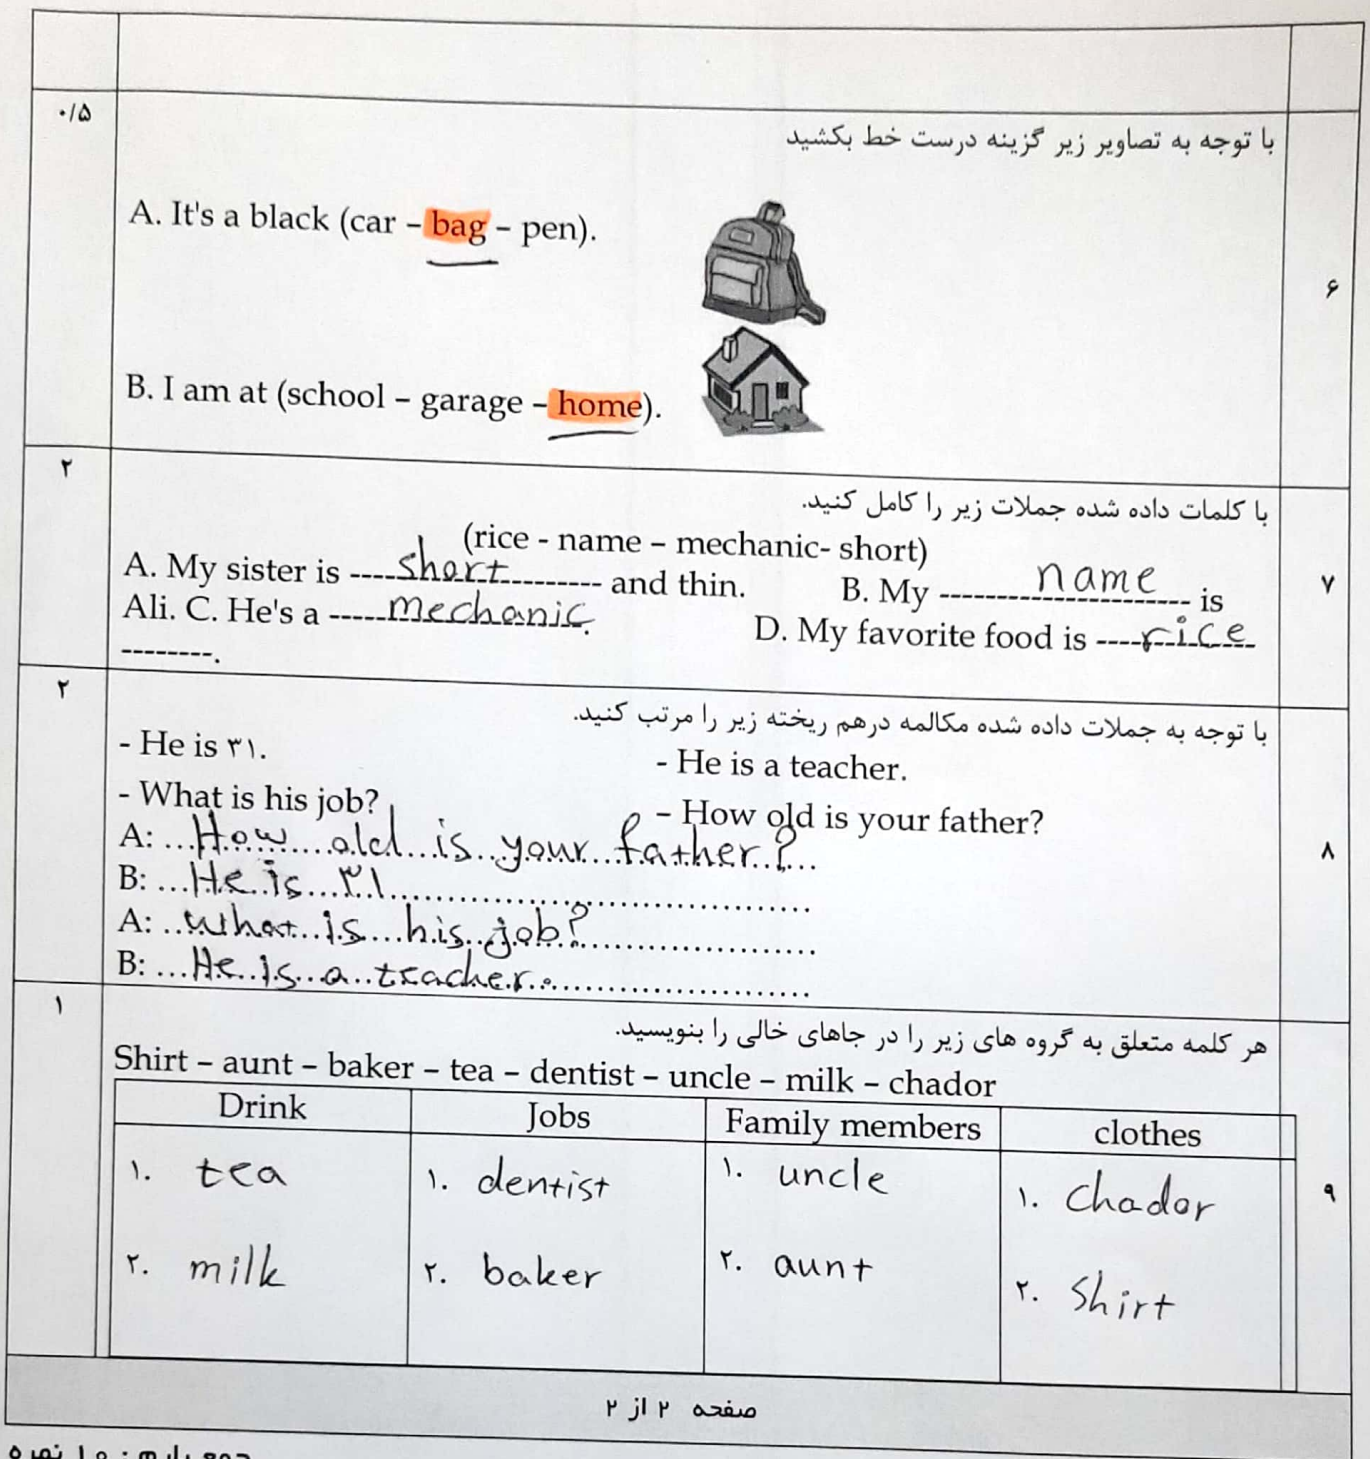 ۰/۵
با توجه به تصاویر زیر گزینه درست خط بکشید
A. It's a black (car – bag – pen).
۶
B. I am at (school – garage – home).
۲
با کلمات داده شده جملات زیر را کامل کنید.
(rice - name – mechanic- short)
A. My sister is ----short--------- and thin. B. My ----name---- is
۷
Ali. C. He's a -----mechanic. D. My favorite food is ----rice----
--------.
۲
با توجه به جملات داده شده مکالمه درهم ریخته زیر را مرتب کنید.
- He is ۳۱. - He is a teacher.
- What is his job? – How old is your father?
A: ...How old is your father?...
۸
B: ...He is ۳۱...
A: ...what is his job?...
B: ...He is a teacher....
۱
هر کلمه متعلق به گروه های زیر را در جاهای خالی را بنویسید.
Shirt – aunt – baker – tea – dentist – uncle – milk – chador
Drink Jobs Family members clothes
۱. tea ۱. dentist ۱. uncle ۱. chador
۹
۲. milk ۲. baker ۲. aunt ۲. Shirt
صفحه ۲ از ۲